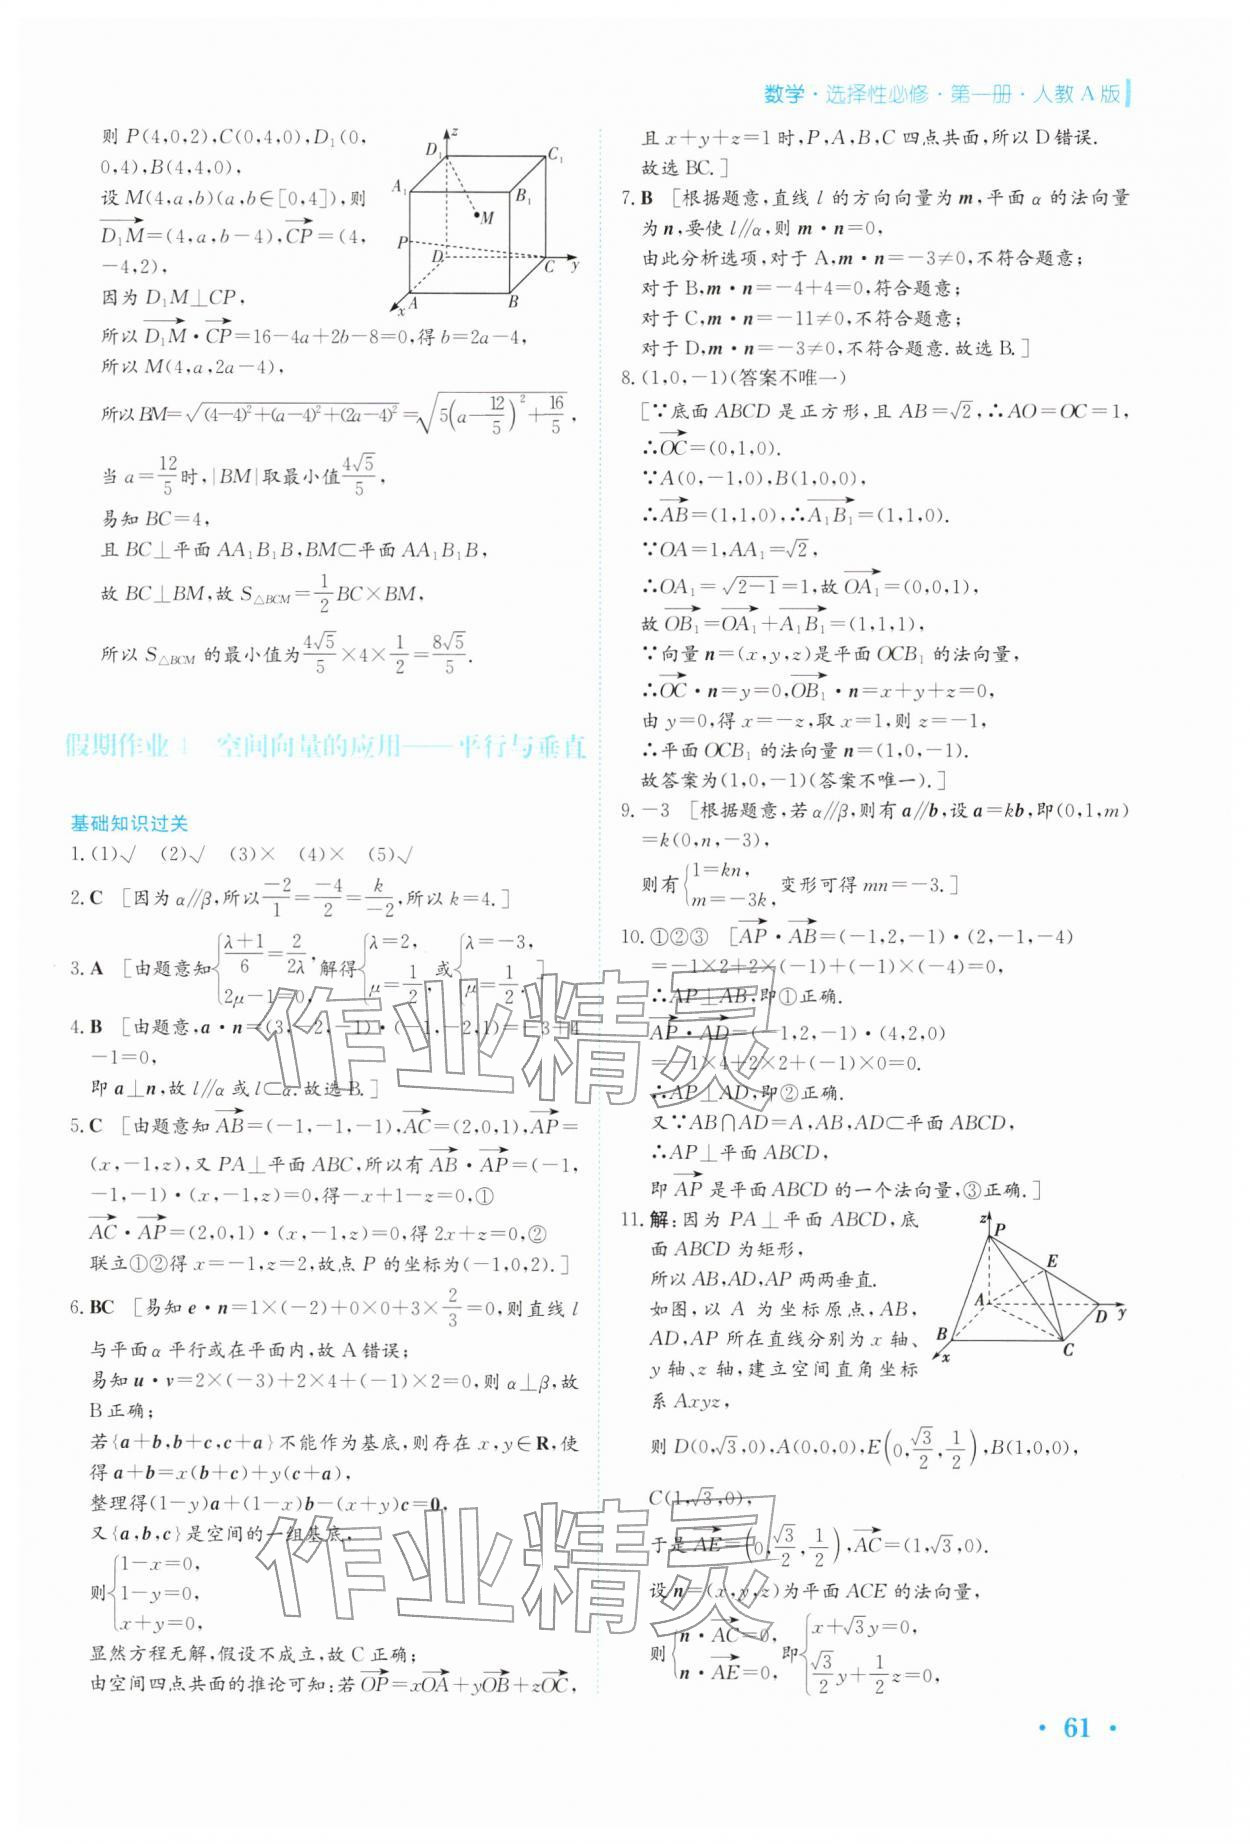 数学·选择性必修·第一册·人教A版
则 P(4,0,2),C(0,4,0),D₁(0,
0,4),B(4,4,0),
设 M(4,a,b)(a,b∈[0,4]),则
D₁M→=(4,a,b-4),CP→=(4,
-4,2),
因为 D₁M⊥CP,
所以 D₁M→·CP→=16-4a+2b-8=0,得 b=2a-4,
所以 M(4,a,2a-4),
所以 BM=√((4-4)²+(a-4)²+(2a-4)²)=√(5(a-12/5)²+16/5),
当 a=12/5 时,|BM|取最小值 4√5/5,
易知 BC=4,
且 BC⊥平面 AA₁B₁B,BM⊂平面 AA₁B₁B,
故 BC⊥BM,故 S△BCM=1/2 BC×BM,
所以 S△BCM 的最小值为 4√5/5×4×1/2=8√5/5.
z
D₁
C₁
A₁
B₁
M
P
D
C
y
A
B
x
假期作业4 空间向量的应用——平行与垂直
基础知识过关
1.(1)√ (2)√ (3)× (4)× (5)√
2.C [因为 α∥β,所以 -2/1=-4/2=k/-2,所以 k=4.]
3.A [由题意知{(λ+1)/6=2/2λ, 2μ-1=0, 解得{λ=2, μ=1/2, 或{λ=-3, μ=1/2.]
4.B [由题意,a·n=(3,-2,-1)·(-1,-2,1)=-3+4
-1=0,
即 a⊥n,故 l∥α 或 l⊂α.故选 B.]
5.C [由题意知 AB→=(-1,-1,-1),AC→=(2,0,1),AP→=
(x,-1,z),又 PA⊥平面 ABC,所以有 AB→·AP→=(-1,
-1,-1)·(x,-1,z)=0,得-x+1-z=0,①
AC→·AP→=(2,0,1)·(x,-1,z)=0,得 2x+z=0,②
联立①②得 x=-1,z=2,故点 P 的坐标为(-1,0,2).]
6.BC [易知 e·n=1×(-2)+0×0+3×2/3=0,则直线 l
与平面 α 平行或在平面内,故 A 错误;
易知 u·v=2×(-3)+2×4+(-1)×2=0,则 α⊥β,故
B 正确;
若{a+b,b+c,c+a}不能作为基底,则存在 x,y∈R,使
得 a+b=x(b+c)+y(c+a),
整理得(1-y)a+(1-x)b-(x+y)c=0,
又{a,b,c}是空间的一组基底,
则{1-x=0, 1-y=0, x+y=0,
显然方程无解,假设不成立,故 C 正确;
由空间四点共面的推论可知:若 OP→=xOA→+yOB→+zOC→,
且 x+y+z=1 时,P,A,B,C 四点共面,所以 D 错误.
故选 BC.]
7.B [根据题意,直线 l 的方向向量为 m,平面 α 的法向量
为 n,要使 l∥α,则 m·n=0,
由此分析选项,对于 A,m·n=-3≠0,不符合题意;
对于 B,m·n=-4+4=0,符合题意;
对于 C,m·n=-11≠0,不符合题意;
对于 D,m·n=-3≠0,不符合题意.故选 B.]
8.(1,0,-1)(答案不唯一)
[∵底面 ABCD 是正方形,且 AB=√2,∴AO=OC=1,
∴OC→=(0,1,0).
∵A(0,-1,0),B(1,0,0),
∴AB→=(1,1,0),∴A₁B₁→=(1,1,0).
∵OA=1,AA₁=√2,
∴OA₁=√(2-1)=1,故 OA₁→=(0,0,1),
故 OB₁→=OA₁→+A₁B₁→=(1,1,1),
∵向量 n=(x,y,z)是平面 OCB₁ 的法向量,
∴OC→·n=y=0,OB₁→·n=x+y+z=0,
由 y=0,得 x=-z,取 x=1,则 z=-1,
∴平面 OCB₁ 的法向量 n=(1,0,-1).
故答案为(1,0,-1)(答案不唯一).]
9.-3 [根据题意,若 α∥β,则有 a∥b,设 a=kb,即(0,1,m)
=k(0,n,-3),
则有{1=kn, m=-3k, 变形可得 mn=-3.]
10.①②③ [AP→·AB→=(-1,2,-1)·(2,-1,-4)
=-1×2+2×(-1)+(-1)×(-4)=0,
∴AP⊥AB,即①正确.
AP→·AD→=(-1,2,-1)·(4,2,0)
=-1×4+2×2+(-1)×0=0.
∴AP⊥AD,即②正确.
又∵AB∩AD=A,AB,AD⊂平面 ABCD,
∴AP⊥平面 ABCD,
即 AP→ 是平面 ABCD 的一个法向量,③正确.]
11.解:因为 PA⊥平面 ABCD,底
面 ABCD 为矩形,
所以 AB,AD,AP 两两垂直.
如图,以 A 为坐标原点,AB,
AD,AP 所在直线分别为 x 轴、
y 轴、z 轴,建立空间直角坐标
系 Axyz,
则 D(0,√3,0),A(0,0,0),E(0,√3/2,1/2),B(1,0,0),
C(1,√3,0),
于是 AE→=(0,√3/2,1/2),AC→=(1,√3,0).
设 n=(x,y,z)为平面 ACE 的法向量,
则{n·AC→=0, n·AE→=0, 即{x+√3y=0, √3/2 y+1/2 z=0,
z
P
E
A
D
y
B
C
x
作业精灵
作业精灵
·61·